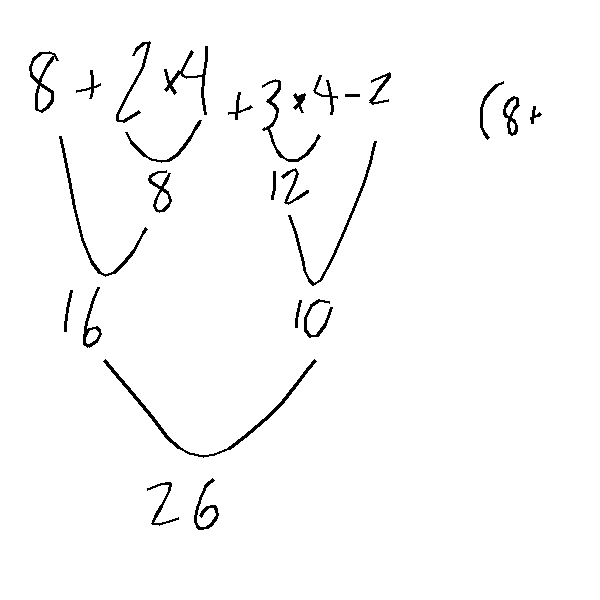 8 + 2 × 4 + 3 × 4 - 2 (8 +
8 12
16 10
26